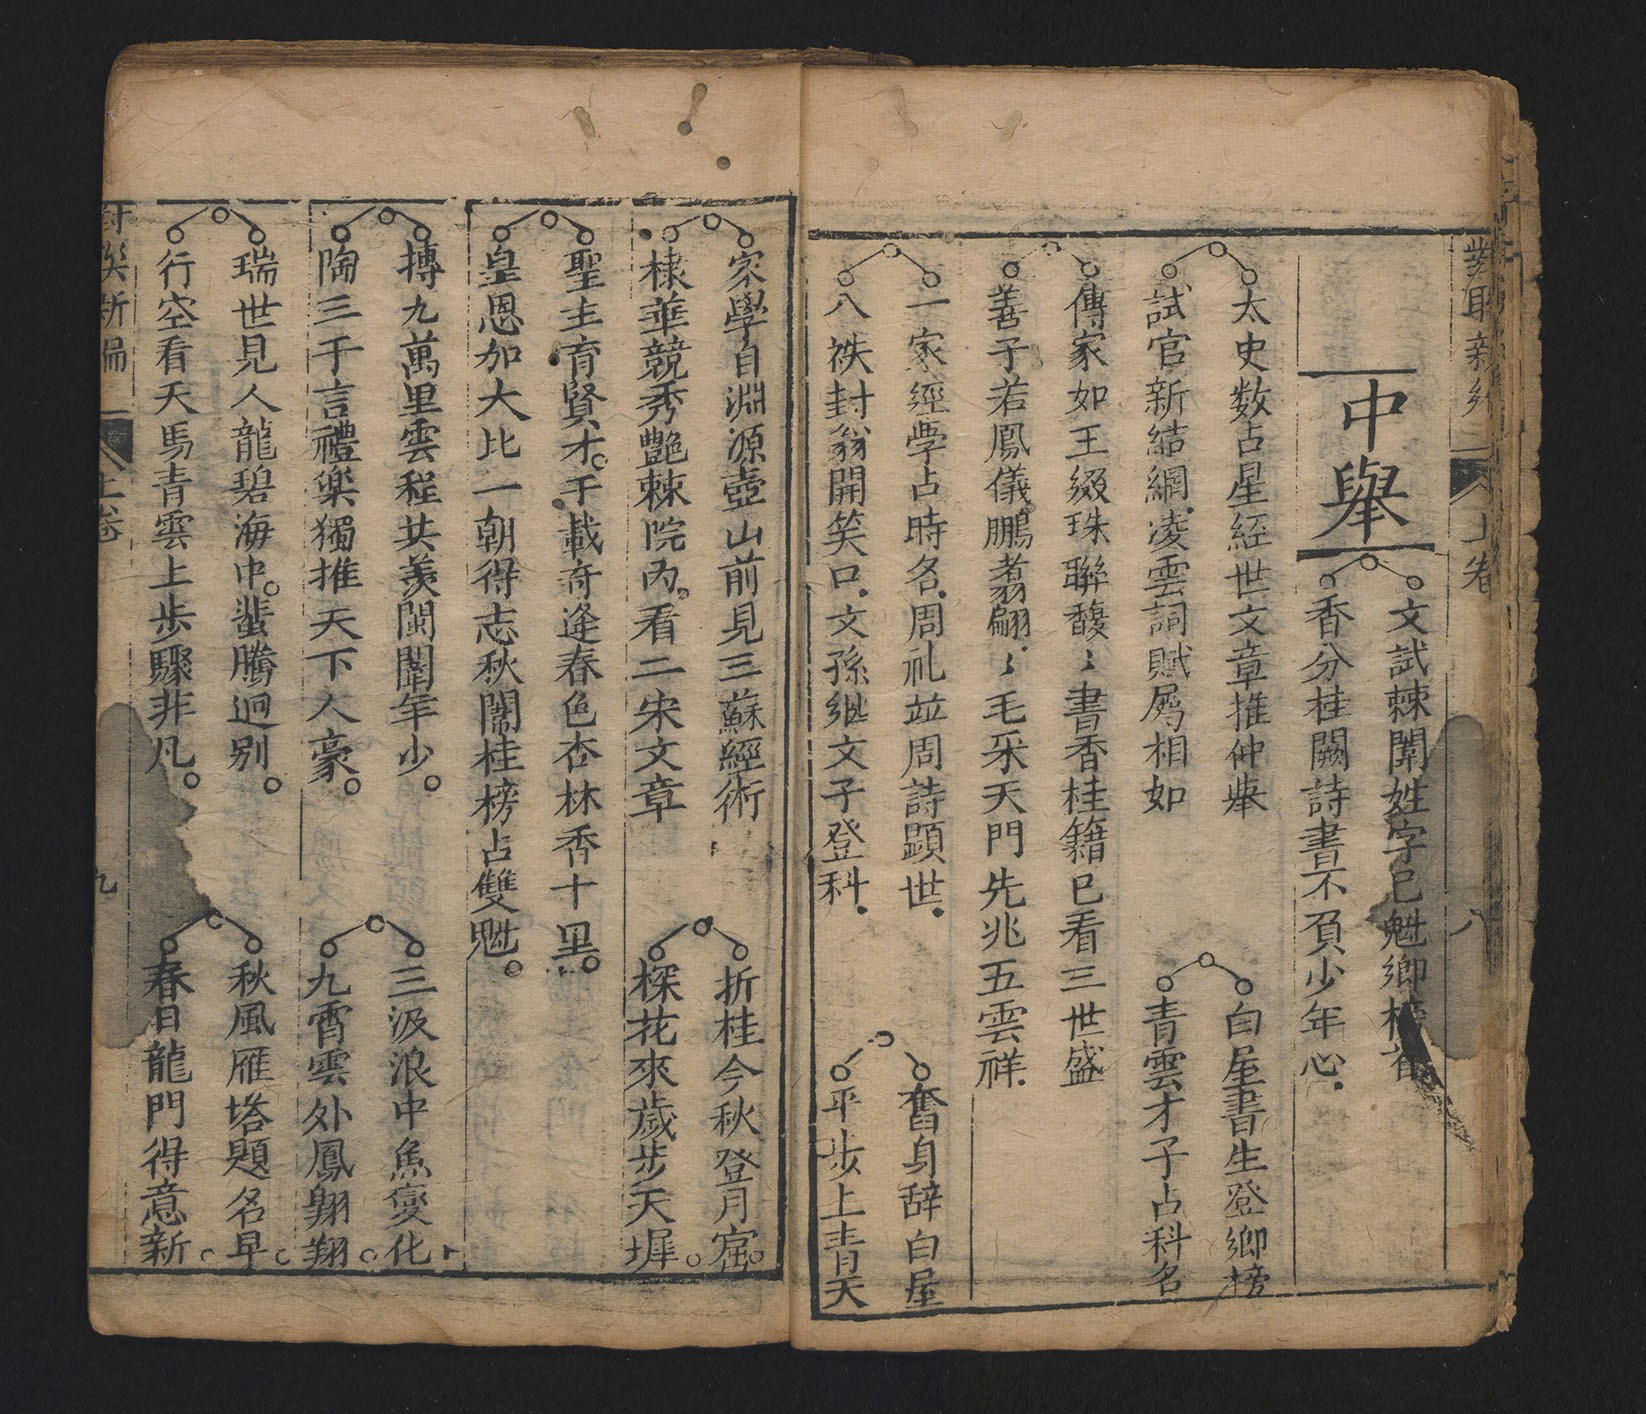 對聯新
上卷
八
中舉
文試棘闈姓字已魁鄉榜首
香分桂闕詩書不負少年心
太史数占星経世文章推仲舉
試官新結網凌雲詞賦屬相如
白屋書生登鄉榜
青雲才子占科名
傳家如王綴珠聯馥〻書香桂籍已看三世盛
善子若鳳儀鵬翥翩〻毛采天門先兆五雲祥
一家經學占時名周礼並周詩顕世
八袟封翁開笑口文孫継文子登科
奮身辞白屋
平步上青天
家學自淵源壺山前見三蘇經術
棣華競秀艷棘院内看二宋文章
折桂今秋登月窟
探花來歲步天墀
聖主育賢才千載竒逢春色杏林香十里
皇恩加大比一朝得志秋闈桂榜占雙魁
摶九萬里雲程共羡閩闈年少
陶三千言禮樂獨推天下人豪
三汲浪中魚變化
九霄雲外鳳翱翔
瑞世見人龍碧海中蜚騰迥別
行空看天馬青雲上步驟非凡
秋風雁塔題名早
春日龍門得意新
新編
上卷
九